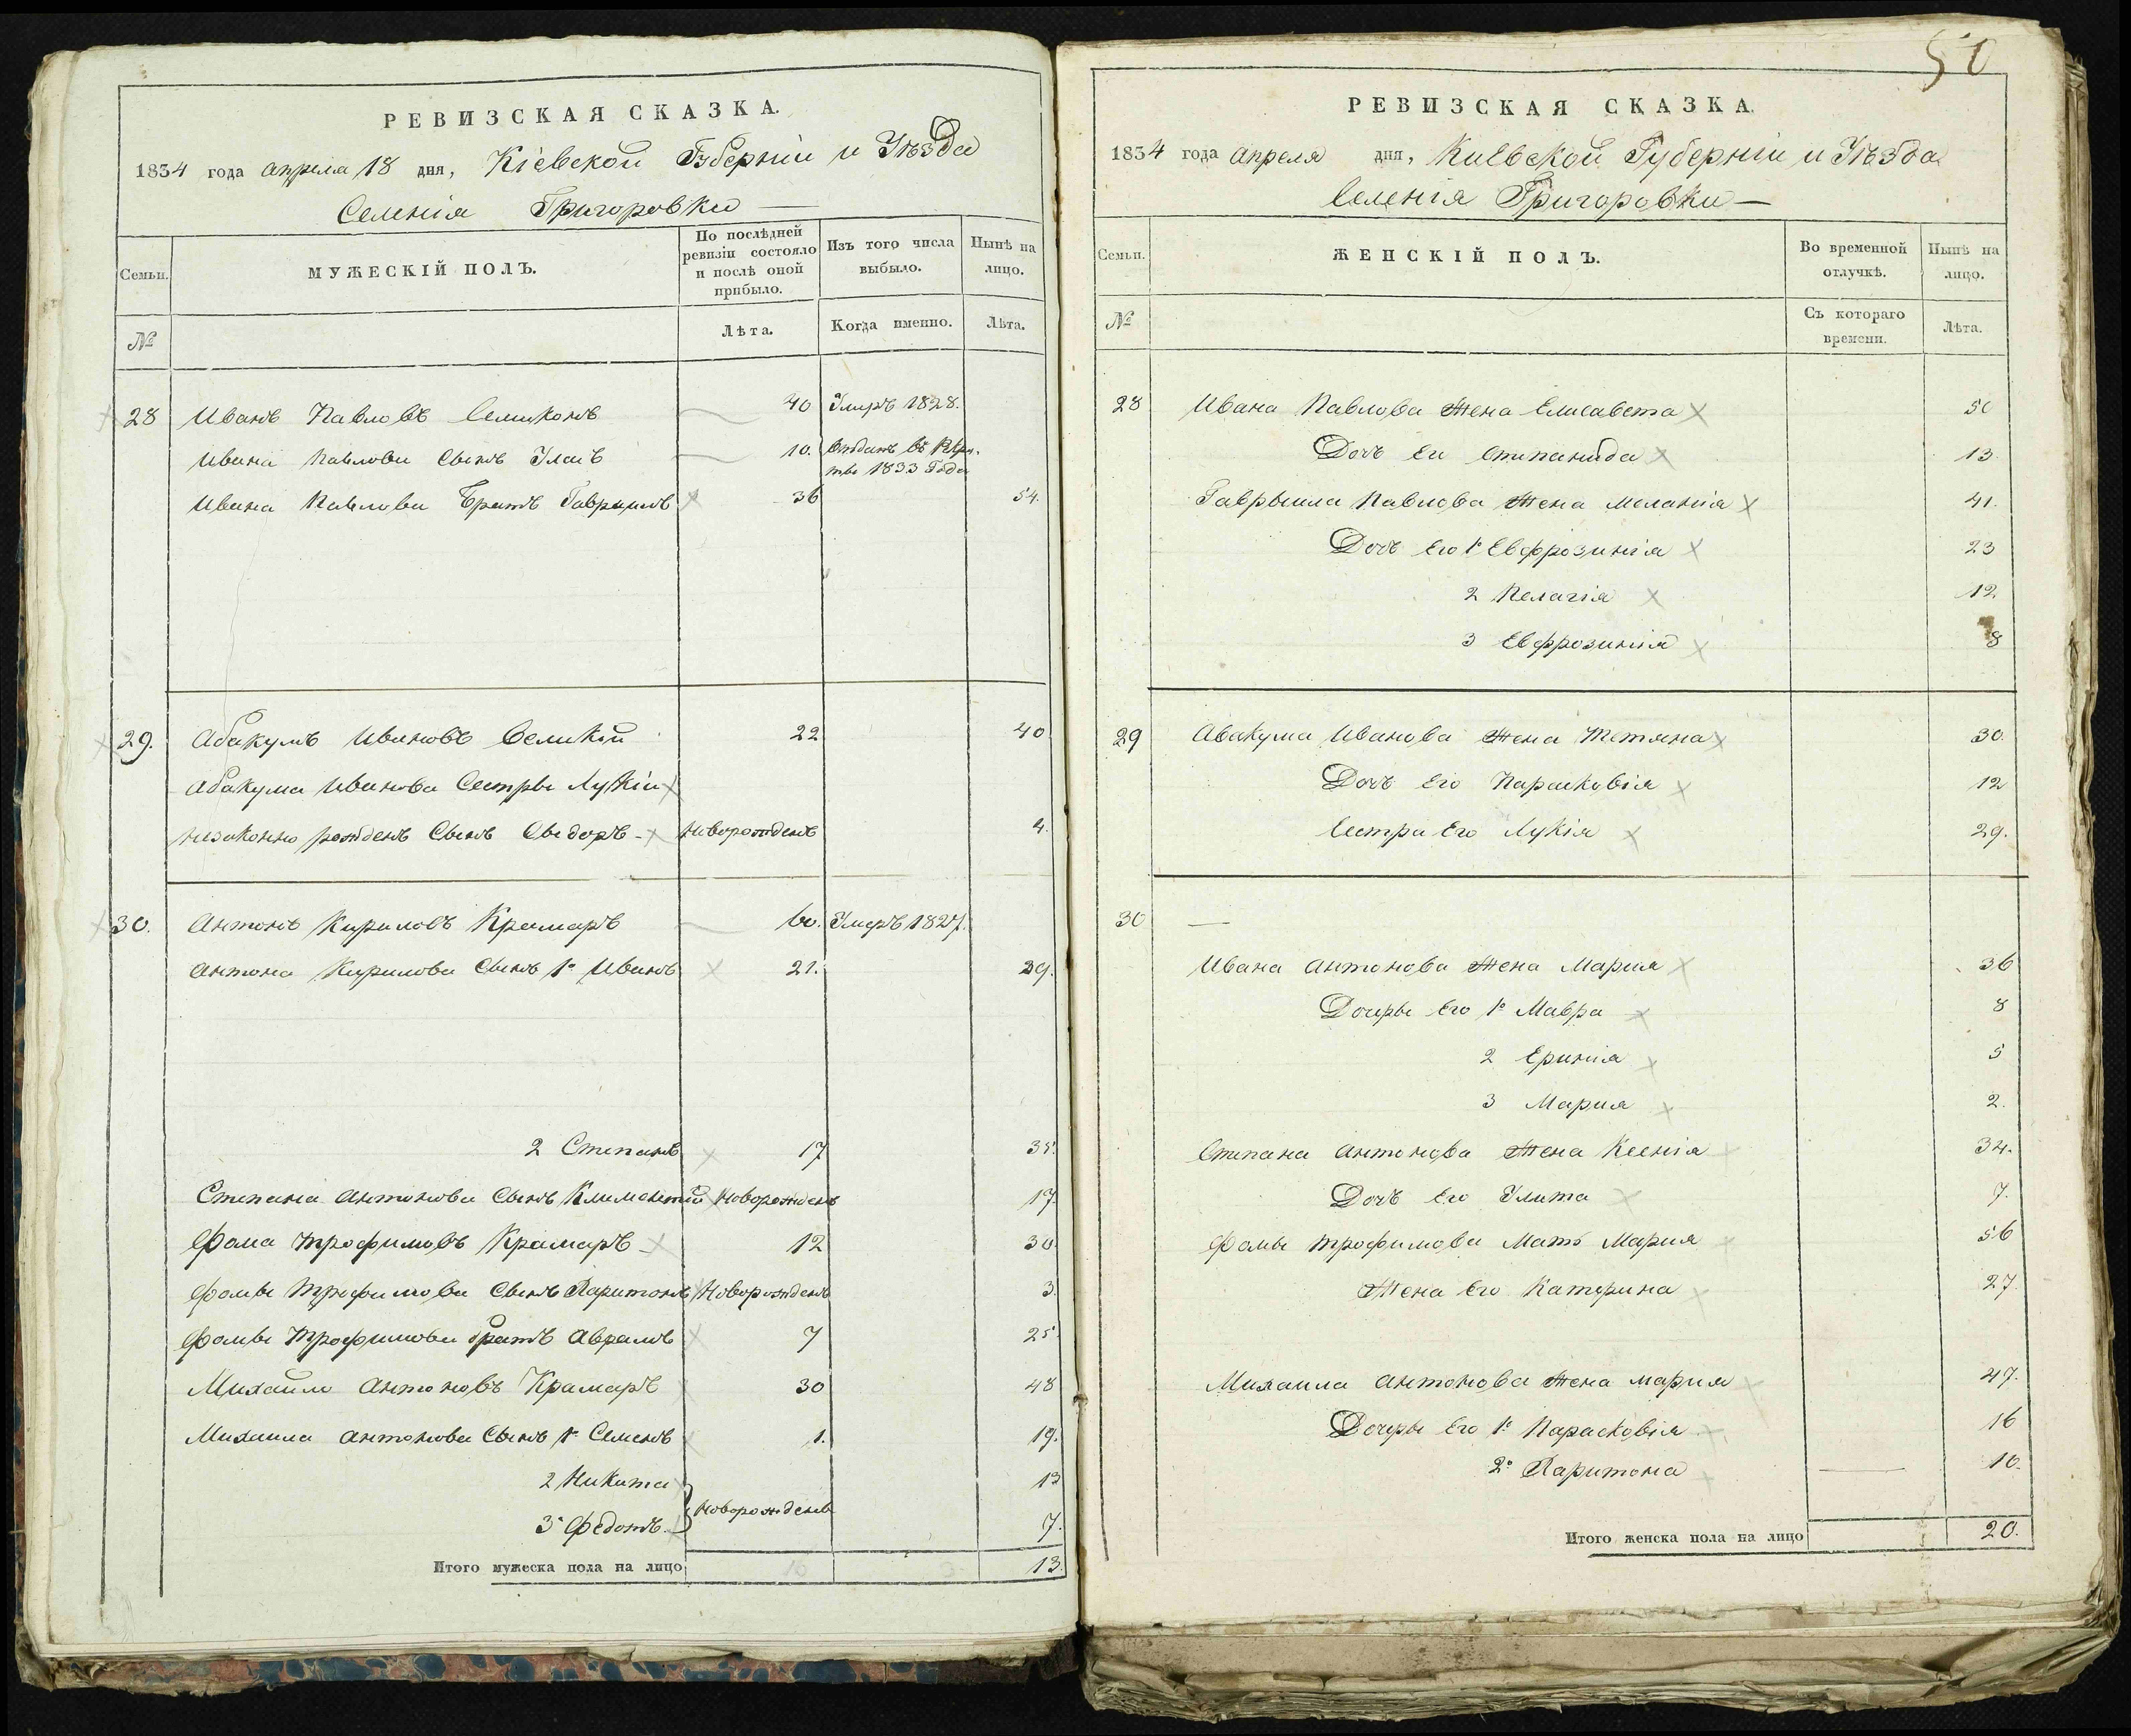 50
РЕВИЗСКАЯ СКАЗКА.
1834 года апреля 18 дня, Кіевской Губерніи и Уѣзда
Селенія Григоровки —
Семьи.
МУЖЕСКІЙ ПОЛЪ.
По послѣдней ревизіи состояло и послѣ оной прибыло.
Изъ того числа выбыло.
Нынѣ на лицо.
№
Лѣта.
Когда именно.
Лѣта.
28 Иванъ Павловъ 40 Умеръ 1828.
Ивана Павлова Сынъ 10. Отданъ въ
1833 Года
Ивана Павлова Братъ Гаврыилъ 36 54.
29. Абакумъ Ивановъ Великій 22 40
Абакума Иванова Сестры Лукіи
незаконно рожденъ Сынъ Сыдоръ - Новорожденъ 4.
30. Антонъ Кириловъ Крамаръ 60. Умеръ 1827.
Антона Кирилова Сынъ 1º Иванъ 21. 39.
2 Степанъ 17 35.
Степана Антонова Сынъ Климентій Новорожденъ 17.
Фома Трофимовъ Крамаръ 12 30.
Фомы Трофимова Сынъ Харитонъ Новорожденъ 3.
Фомы Трофимова Братъ Авралъ 7 25.
Михайло Антоновъ Крамаръ 30 48
Михаила Антонова Сынъ 1º Семенъ 1. 19.
2 Никита 13
Новорожденъ
3º Федотъ. 7.
Итого мужеска пола на лицо 13.
РЕВИЗСКАЯ СКАЗКА.
1834 года Апреля дня, Киевской Губерніи и Уѣзда
Селенія Григоровки —
Семьи.
ЖЕНСКІЙ ПОЛЪ.
Во временной отлучкѣ.
Нынѣ на лицо.
№
Съ котораго времени.
Лѣта.
28 Ивана Павлова Жена Елисавета 50
Дочь Ея Степанида 13.
Гаврыила Павлова Жена Меланія 41.
Дочь Его 1º Евфрозинія 23
2 Пелагія 12.
3 Евфрозинія 8
29 Авакума Иванова Жена Тетяна 30.
Дочь Его Парасковія 12
Сестра Его Лукія 29.
30 —
Ивана Антонова Жена Мария 36
Дочеры Его 1º Мавра 8
2 Еринія 5
3 Мария 2.
Степана Антонова Жена Ксенія 34.
Дочь Его Улита 7.
Фомы Трофимова Мать Мария 56
Жена Его Катерина 27.
Михаила Антонова Жена Мария 47.
Дочеры Его 1º Парасковія 16
2º Харитона 10.
Итого женска пола на лицо 20.